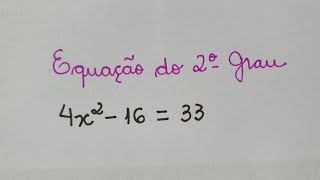 Equação do 2º grau
4x² - 16 = 33